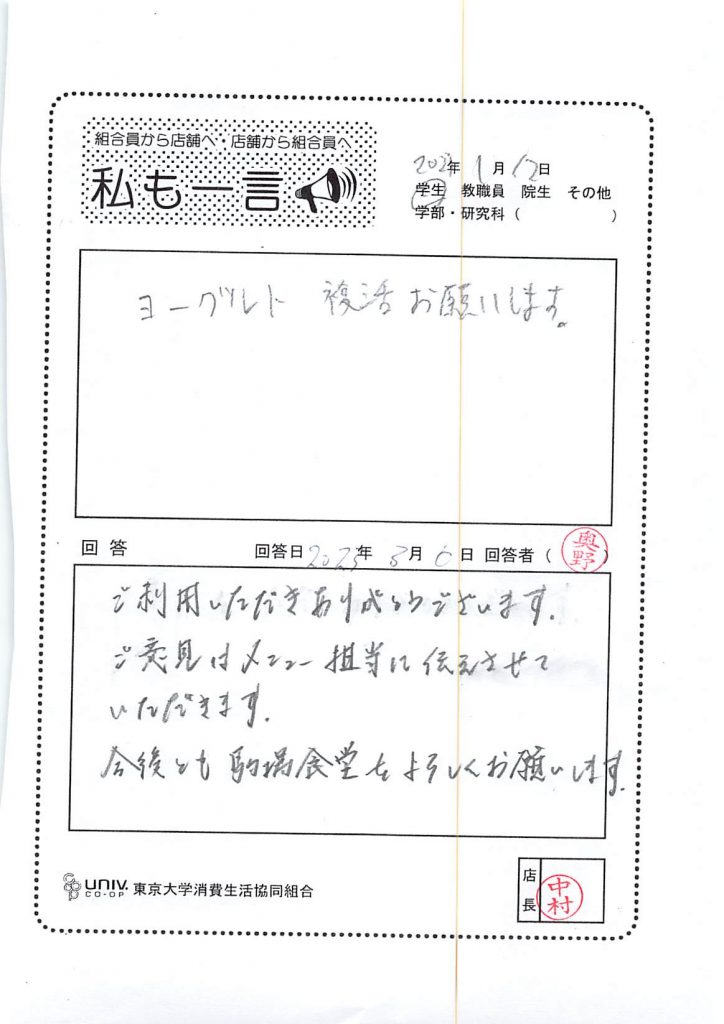 組合員から店舗へ・店舗から組合員へ
私も一言
年 1月12日
学生 教職員 院生 その他
学部・研究科( )
ヨーグルト 複活お願いします。
回答 回答日2023年3月 日 回答者(奥野)
ご利用いただきありがとうございます.
ご意見はメニュー担当に伝えさせて
いただきます.
今後とも駒場食堂をよろしくお願いします.
UNIV.
CO-OP
東京大学消費生活協同組合
店長
中村